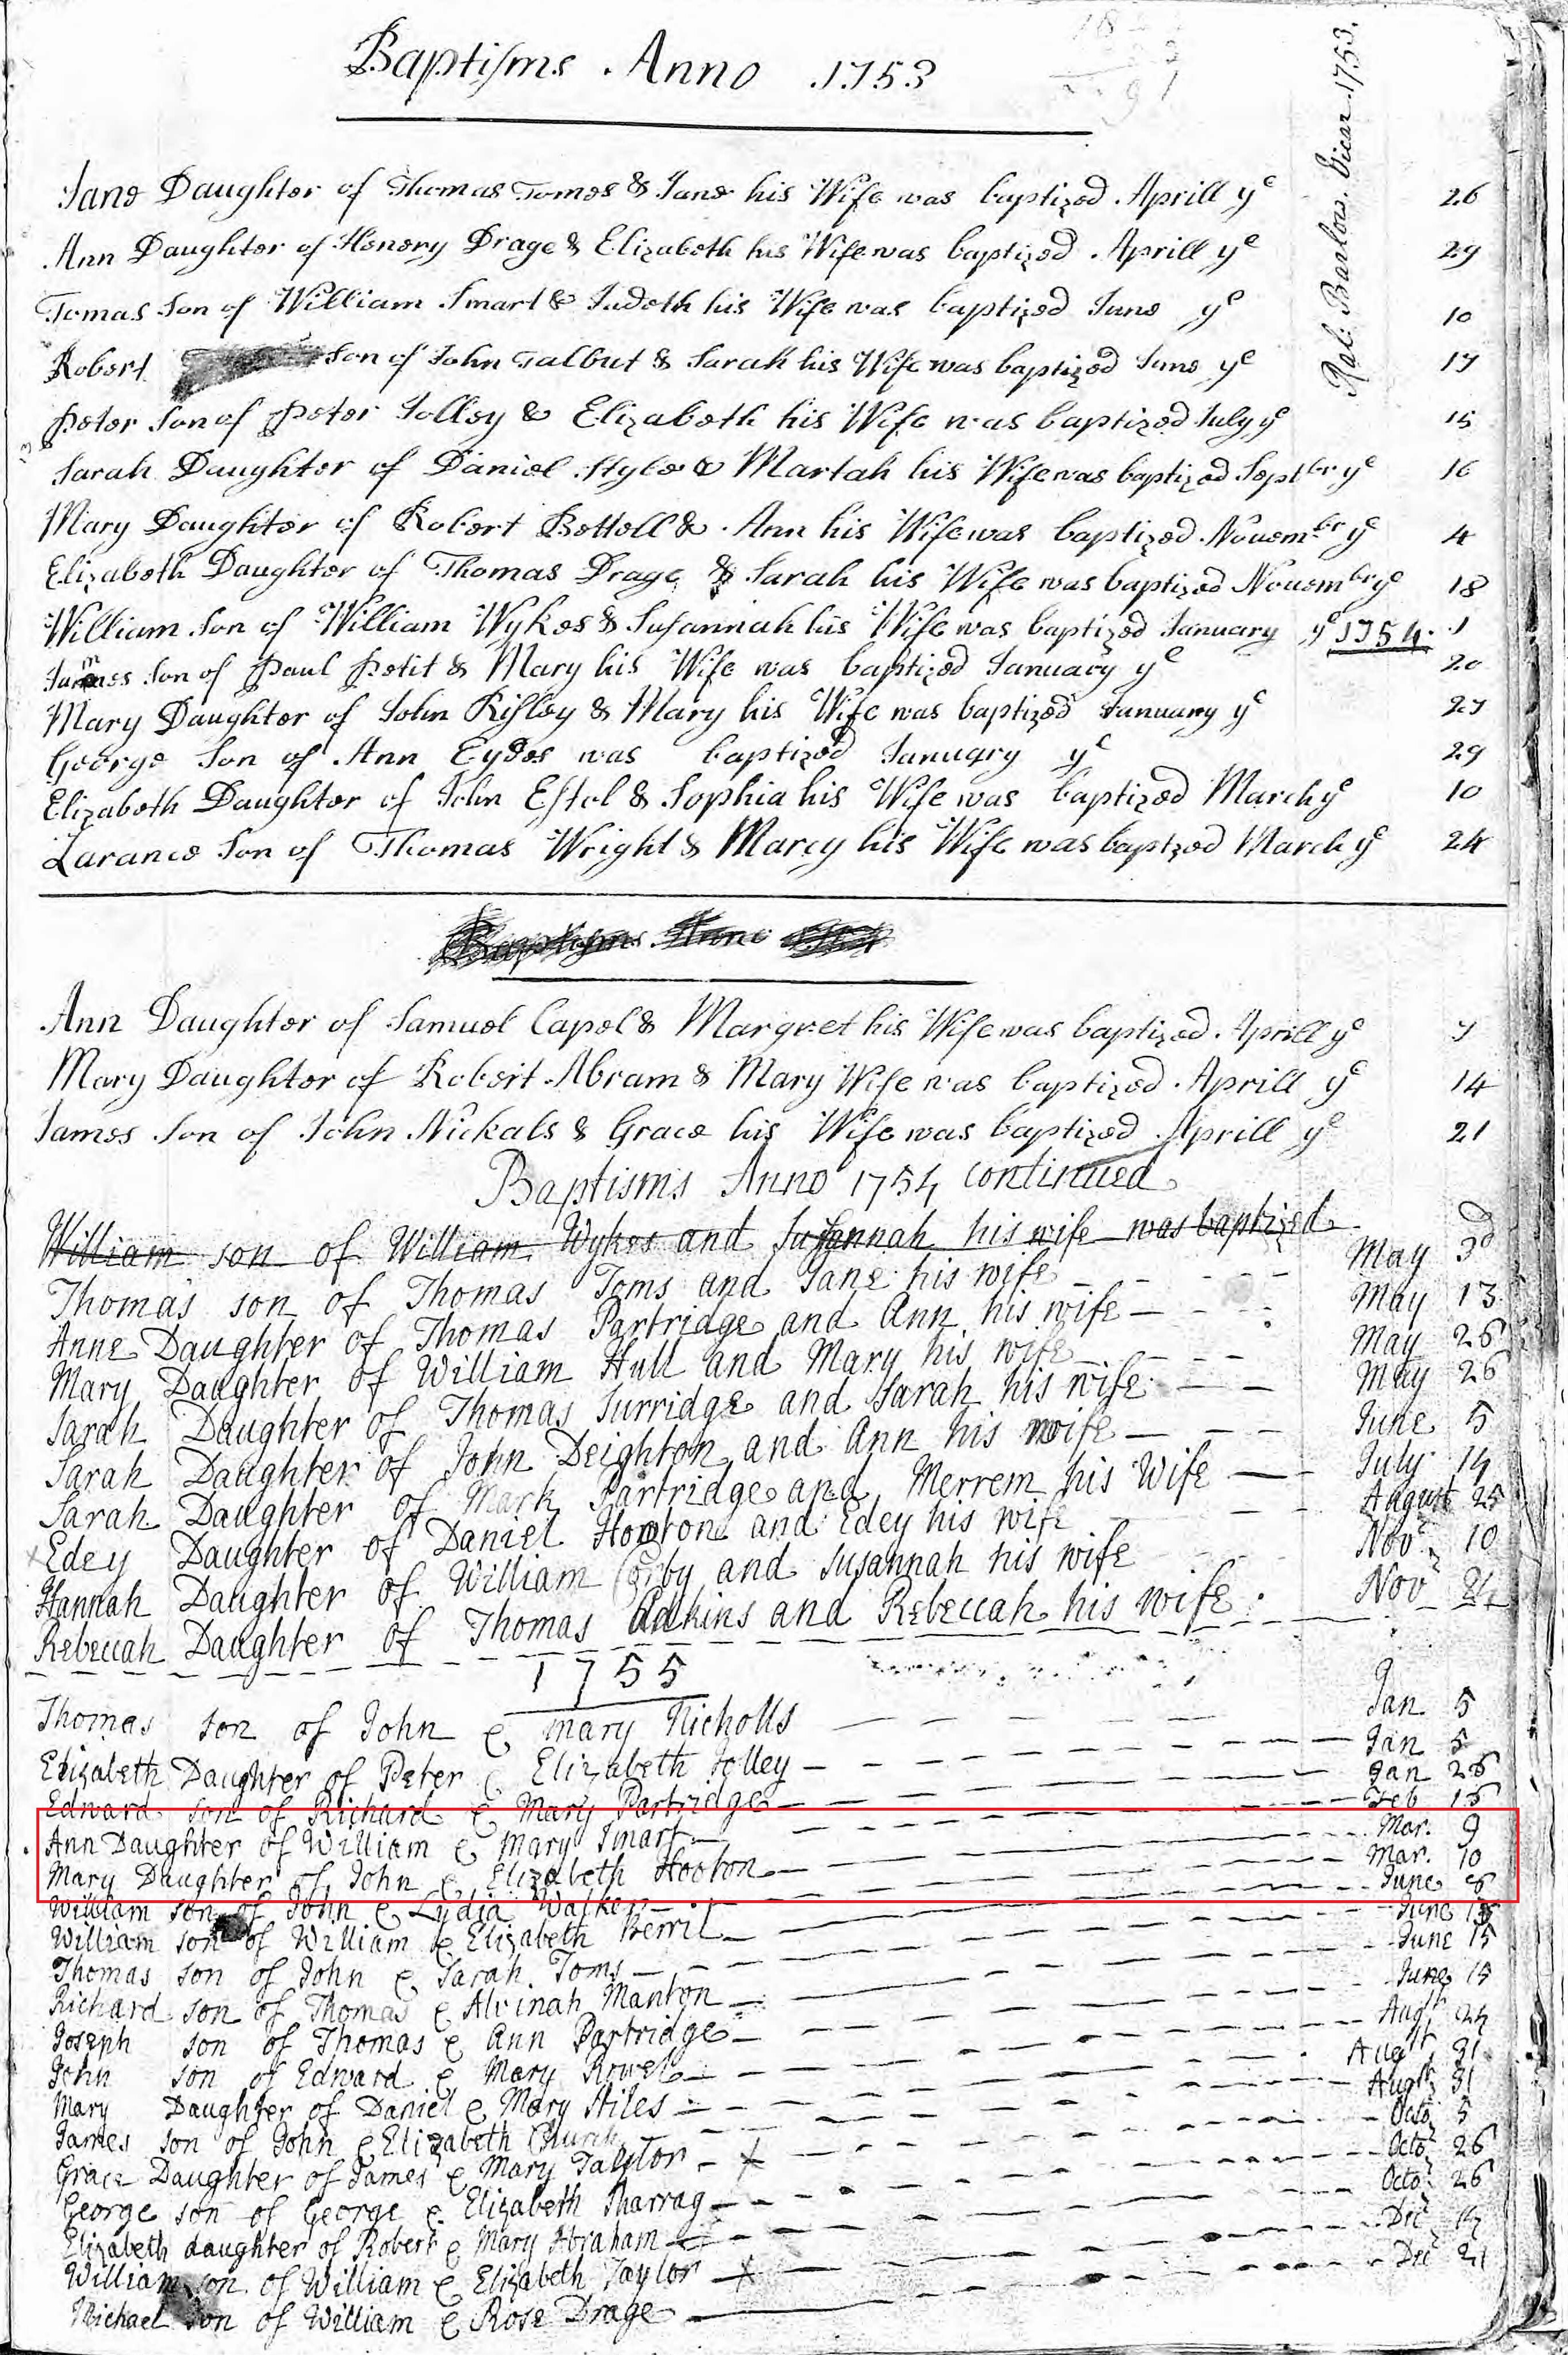 Baptisms Anno 1753
Rob: Barlow. Vicar. 1753.
Jane Daughter of Thomas Tomes & Jane his Wife was baptized Aprill ye 26
Ann Daughter of Henery Drage & Elizabeth his Wife was baptized Aprill ye 29
Tomas Son of William Smart & Judeth his Wife was baptized June ye 10
Robert Son of John Talbut & Sarah his Wife was baptized June ye 17
Peter Son of Peter Jolley & Elizabeth his Wife was baptized July ye 15
Sarah Daughter of Daniel Style & Martah his Wife was baptized Septbr ye 16
Mary Daughter of Robert Bettell & Ann his Wife was baptized Novembr ye 4
Elizabeth Daughter of Thomas Drage & Sarah his Wife was baptized Novembr ye 18
William Son of William Wykes & Susannah his Wife was baptized January ye 1754. 1
James Son of Paul Petit & Mary his Wife was baptized January ye 20
Mary Daughter of John Risley & Mary his Wife was baptized January ye 27
George Son of Ann Eydes was baptized January ye 29
Elizabeth Daughter of John Estel & Sophia his Wife was baptized March ye 10
Larance Son of Thomas Wright & Marcy his Wife was baptzed March ye 24
Baptisms Anno
Ann Daughter of Samuel Capel & Margret his Wife was baptized Aprill ye 7
Mary Daughter of Robert Abram & Mary Wife was baptized Aprill ye 14
James Son of John Nickals & Grace his Wife was baptized Aprill ye 21
Baptisms Anno 1754 continued
William son of William Wykes and Susannah his wife was baptized
Thomas son of Thomas Toms and Jane his wife May 3d
Anne Daughter of Thomas Partridge and Ann his wife May 13
Mary Daughter of William Hull and Mary his wife May 26
Sarah Daughter of Thomas Surridge and Sarah his wife May 26
Sarah Daughter of John Deighton and Ann his wife June 5
Sarah Daughter of Mark Partridge and Merrem his Wife July 14
Edey Daughter of Daniel Hooton and Edey his wife August 25
Hannah Daughter of William Corby and Susannah his wife Novr 10
Rebeccah Daughter of Thomas Adkins and Rebeccah his wife Novr 24
1755
Thomas son of John & Mary Nicholls Jan 5
Elizabeth Daughter of Peter & Elizabeth Jolley Jan 5
Edward son of Richard & Mary Partridge Jan 26
Ann Daughter of William & Mary Smart Feb 16
Mary Daughter of John & Elizabeth Hooton Mar. 9
William son of John & Lydia Walker Mar. 10
William son of William & Elizabeth Berril June 8
Thomas son of John & Sarah Toms June 15
Richard son of Thomas & Alvinah Manton June 15
Joseph son of Thomas & Ann Partridge June 15
John son of Edward & Mary Rowel Augt 24
Mary Daughter of Daniel & Mary Stiles Augt 31
James son of John & Elizabeth Church Augt 31
Grace Daughter of James & Mary Taylor Octor 5
George son of George & Elizabeth Sharrag Octor 26
Elizabeth daughter of Robert & Mary Abraham Octor 26
William son of William & Elizabeth Taylor Decr 14
Michael son of William & Rose Drage Decr 21